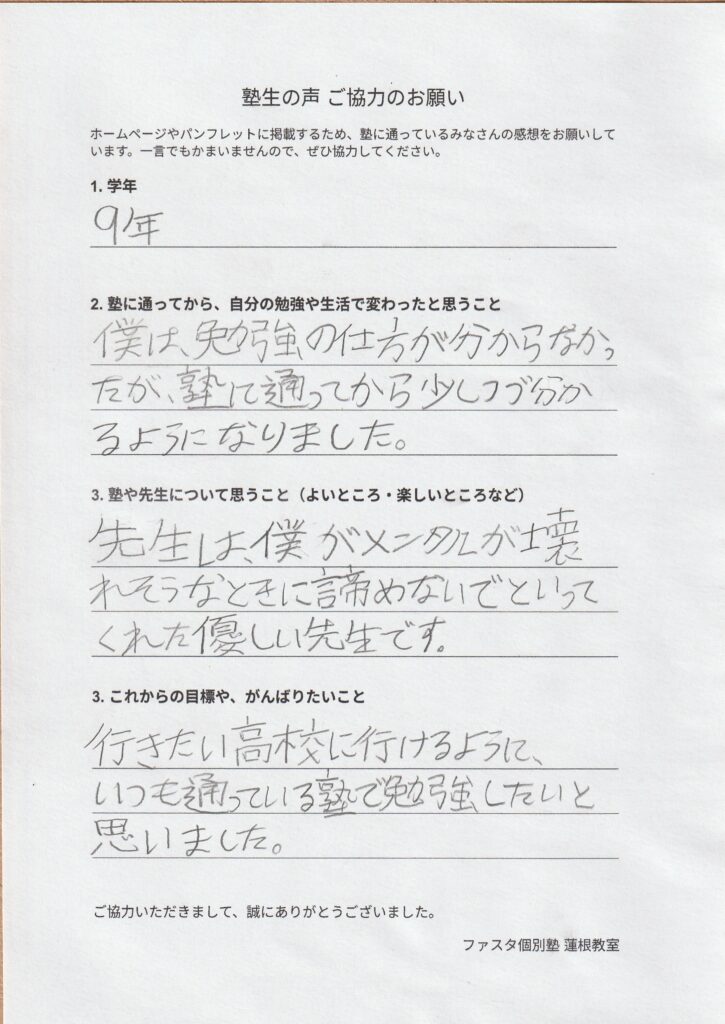 塾生の声 ご協力のお願い
ホームページやパンフレットに掲載するため、塾に通っているみなさんの感想をお願いして
います。一言でもかまいませんので、ぜひ協力してください。
1. 学年
9年
2. 塾に通ってから、自分の勉強や生活で変わったと思うこと
僕は、勉強の仕方が分からなかっ
たが、塾に通ってから少しつづ分か
るようになりました。
3. 塾や先生について思うこと（よいところ・楽しいところなど）
先生は、僕がメンタルが壊
れそうなときに諦めないでといって
くれた優しい先生です。
3. これからの目標や、がんばりたいこと
行きたい高校に行けるように、
いつも通っている塾で勉強したいと
思いました。
ご協力いただきまして、誠にありがとうございました。
ファスタ個別塾 蓮根教室